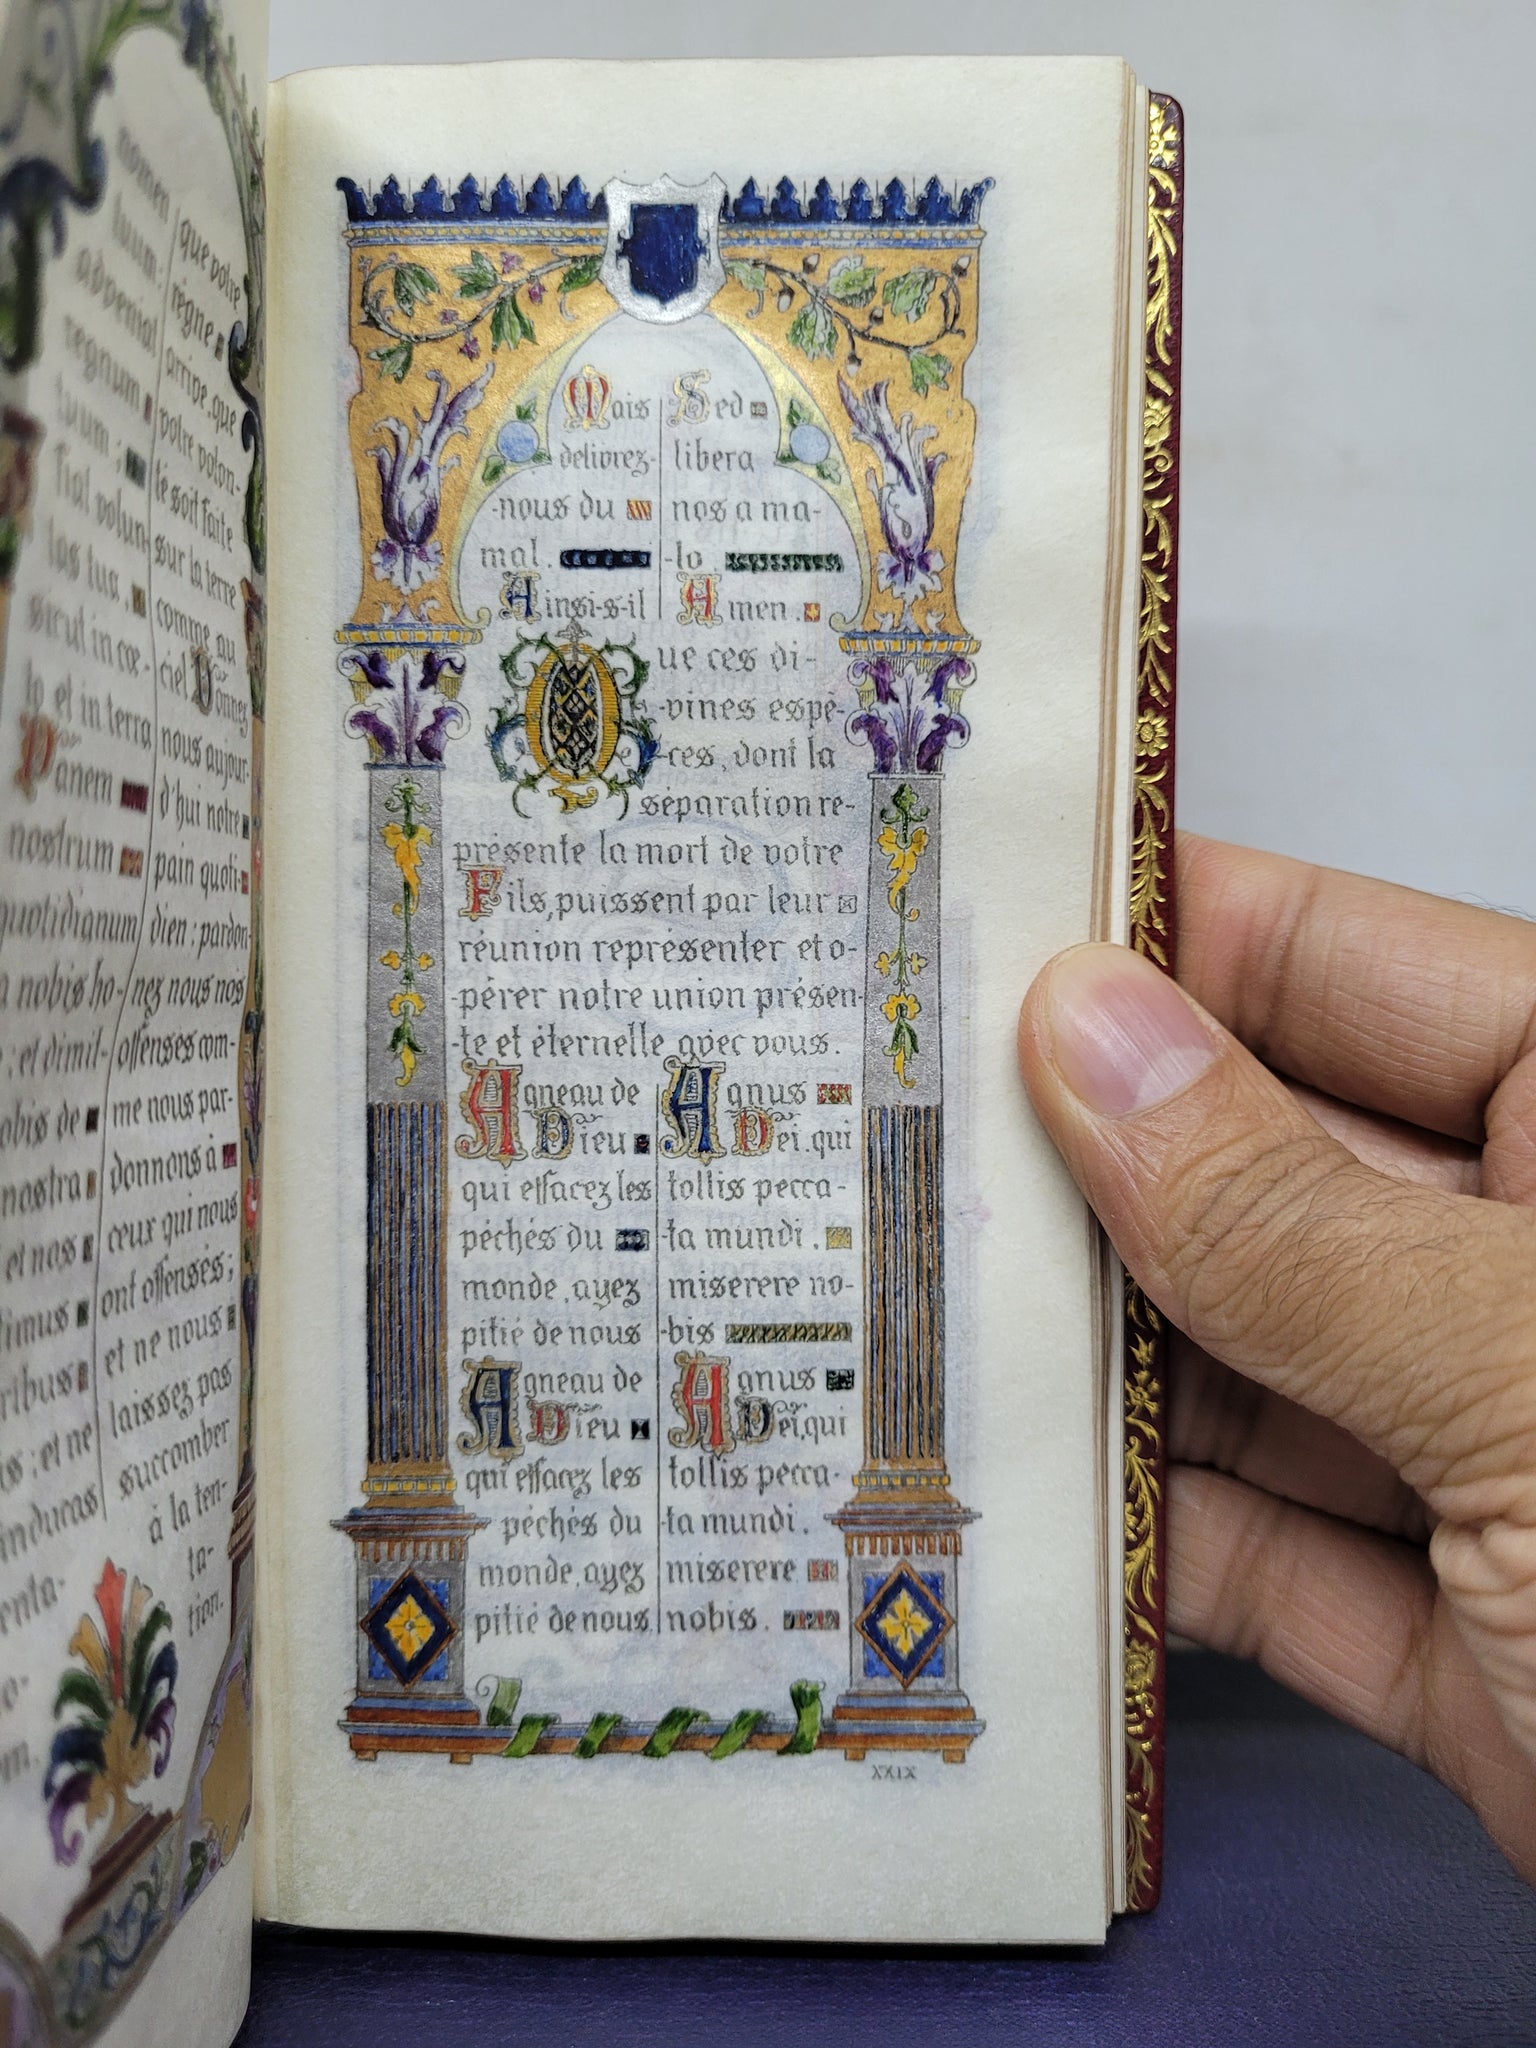 nomen
tuum:
adveniat
regnum
tuum;
fiat volun-
tas tua.
sicut in cœ-
lo et in terra
Panem
nostrum
quotidianum
a nobis ho-
; et dimit-
obis de
nostra
et nos
timus
oribus
is: et ne
inducas
enta-
o-
m.
que votre
règne
arrive. que
votre volon-
té soit faite
sur la terre
comme au
ciel Donnez
nous aujour-
d'hui notre
pain quoti-
dien: pardon-
nez nous nos
offenses com-
me nous par-
donnons à
ceux qui nous
ont offensés;
et ne nous
laissez pas
succomber
à la ten-
ta-
tion.
Mais
delivrez-
-nous du
mal.
Ainsi-s-il
Sed
libera
nos a ma-
-lo.
Amen.
Que ces di-
-vines espè-
-ces, dont la
séparation re-
présente la mort de votre
Fils, puissent par leur
réunion représenter et o-
-pérer notre union présen-
-te et éternelle avec vous.
Agneau de
Dieu
qui effacez les
péchés du
monde, ayez
pitié de nous
Agneau de
Dieu
qui effacez les
péchés du
monde, ayez
pitié de nous.
Agnus
Dei. qui
tollis pecca-
-ta mundi.
miserere no-
-bis
Agnus
Dei, qui
tollis pecca-
-ta mundi.
miserere
nobis.
XXIX